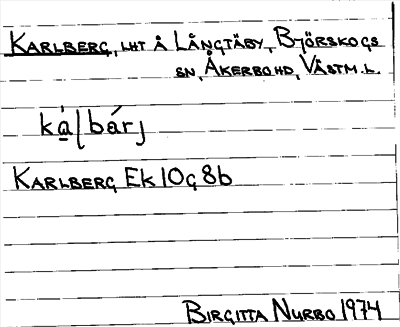 KARLBERG, LHT Å LÅNGTÄBY, BJÖRSKOGS
SN, ÅKERBO HD, VÄSTM. L.
ká̱ɭbárj
KARLBERG Ek 10g 8b
BIRGITTA NURBO 1974